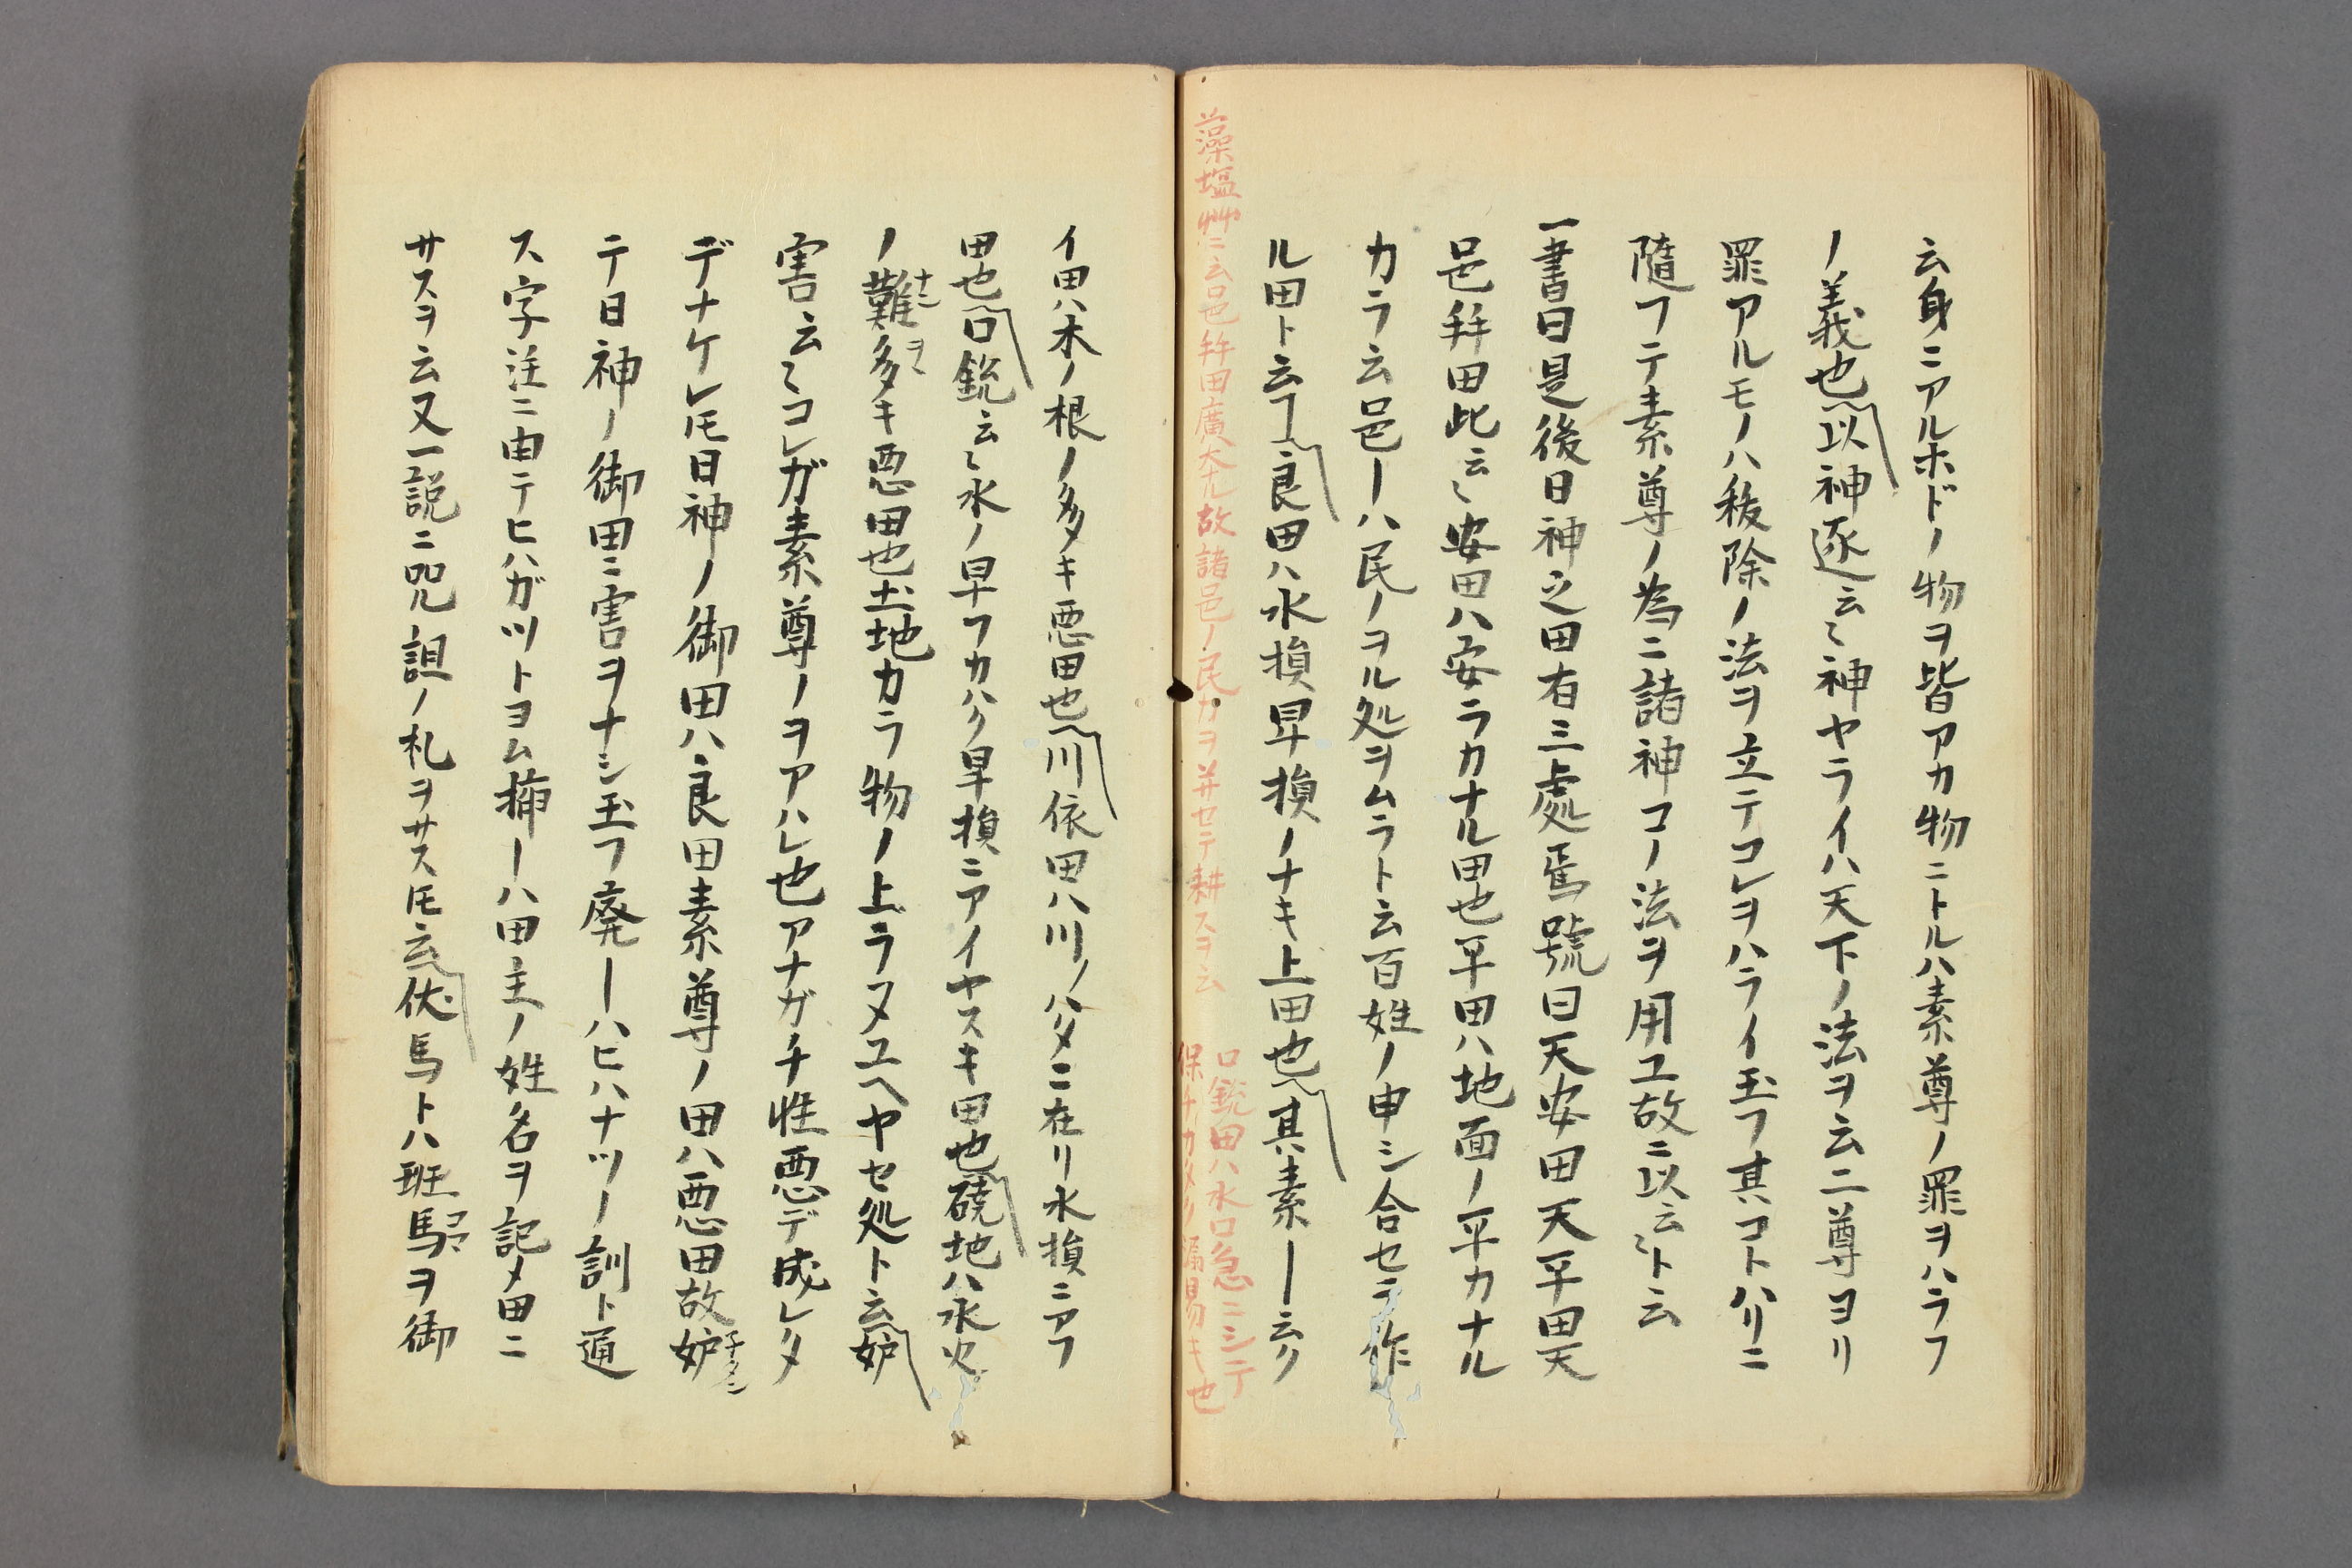 云身ニアルホドノ物ヲ皆アカ物ニトルハ素尊ノ罪ヲハラフ
ノ義也以神逐云〻神ヤライハ天下ノ法ヲ云二尊ヨリ
罪アルモノハ秡除ノ法ヲ立テコレヲハライ玉フ其コトハリニ
隨フテ素尊ノ為ニ諸神コノ法ヲ用ユ故ニ以云〻ト云
一書曰是後日神之田有三處焉號曰天安田天平田天
邑幷田此云〻安田ハ安ラカナル田也平田ハ地面ノ平カナル
カラ云邑ーハ民ノヲル処ヲムラト云百姓ノ申シ合セテ作
ル田ト云ヿ良田ハ水損旱損ノナキ上田也其素ー云ク
藻塩艸ニ云邑幷田廣大ナル故諸邑ノ民力ヲ并セテ耕スヲ云
口銳田ハ水口急ニシテ
保チカタク漏易キ也
イ田ハ木ノ根ノ多キ悪田也川依田ハ川ノハタニ在リ水損ニアフ
田也口銳云〻水ノ早フカハク旱損ニアイヤスキ田也磽地ハ水火
ノ難多キ悪田也土地カラ物ノ上ラヌユヘヤセ処ト云妒
害云〻コレガ素尊ノヲアハレ也アナガチ性悪デ成レタ
デナケレ𪜈日神ノ御田ハ良田素尊ノ田ハ悪田故妒
テ日神ノ御田ニ害ヲナシ玉フ廃ーハヒハナツノ訓ト通
ス字注ニ由テヒハガツトヨム揷ーハ田主ノ姓名ヲ記メ田ニ
サスヲ云又一説ニ咒詛ノ札ヲサス𪜈云伏馬トハ班馬ヲ御